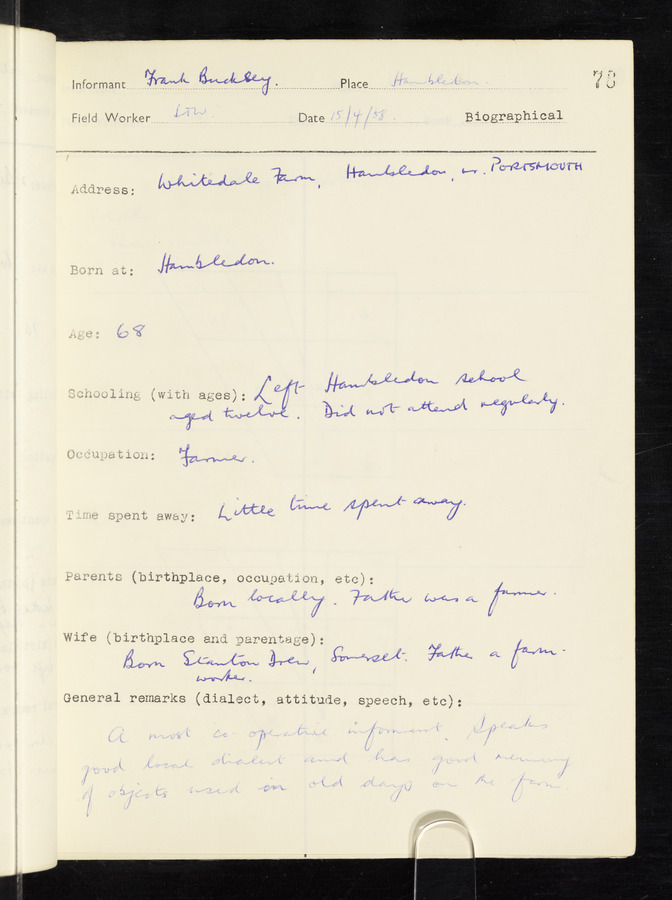 Informant Frank Buckley. Place Hambledon. 78
Field Worker Date 15/4/58. Biographical
Address: Whitedale Farm, Hambledon, nr. PORTSMOUTH
Born at: Hambledon.
Age: 68
Schooling (with ages): Left Hambledon school
aged twelve. Did not attend regularly.
Occupation: Farmer.
Time spent away: Little time spent away.
Parents (birthplace, occupation, etc):
Born locally. Father was a farmer.
Wife (birthplace and parentage):
Born Stanton Drew, Somerset. Father a farm-
worker.
General remarks (dialect, attitude, speech, etc):
A most co-operative informant. Speaks
good local dialect and has good memory
of objects used in old days on the farm.